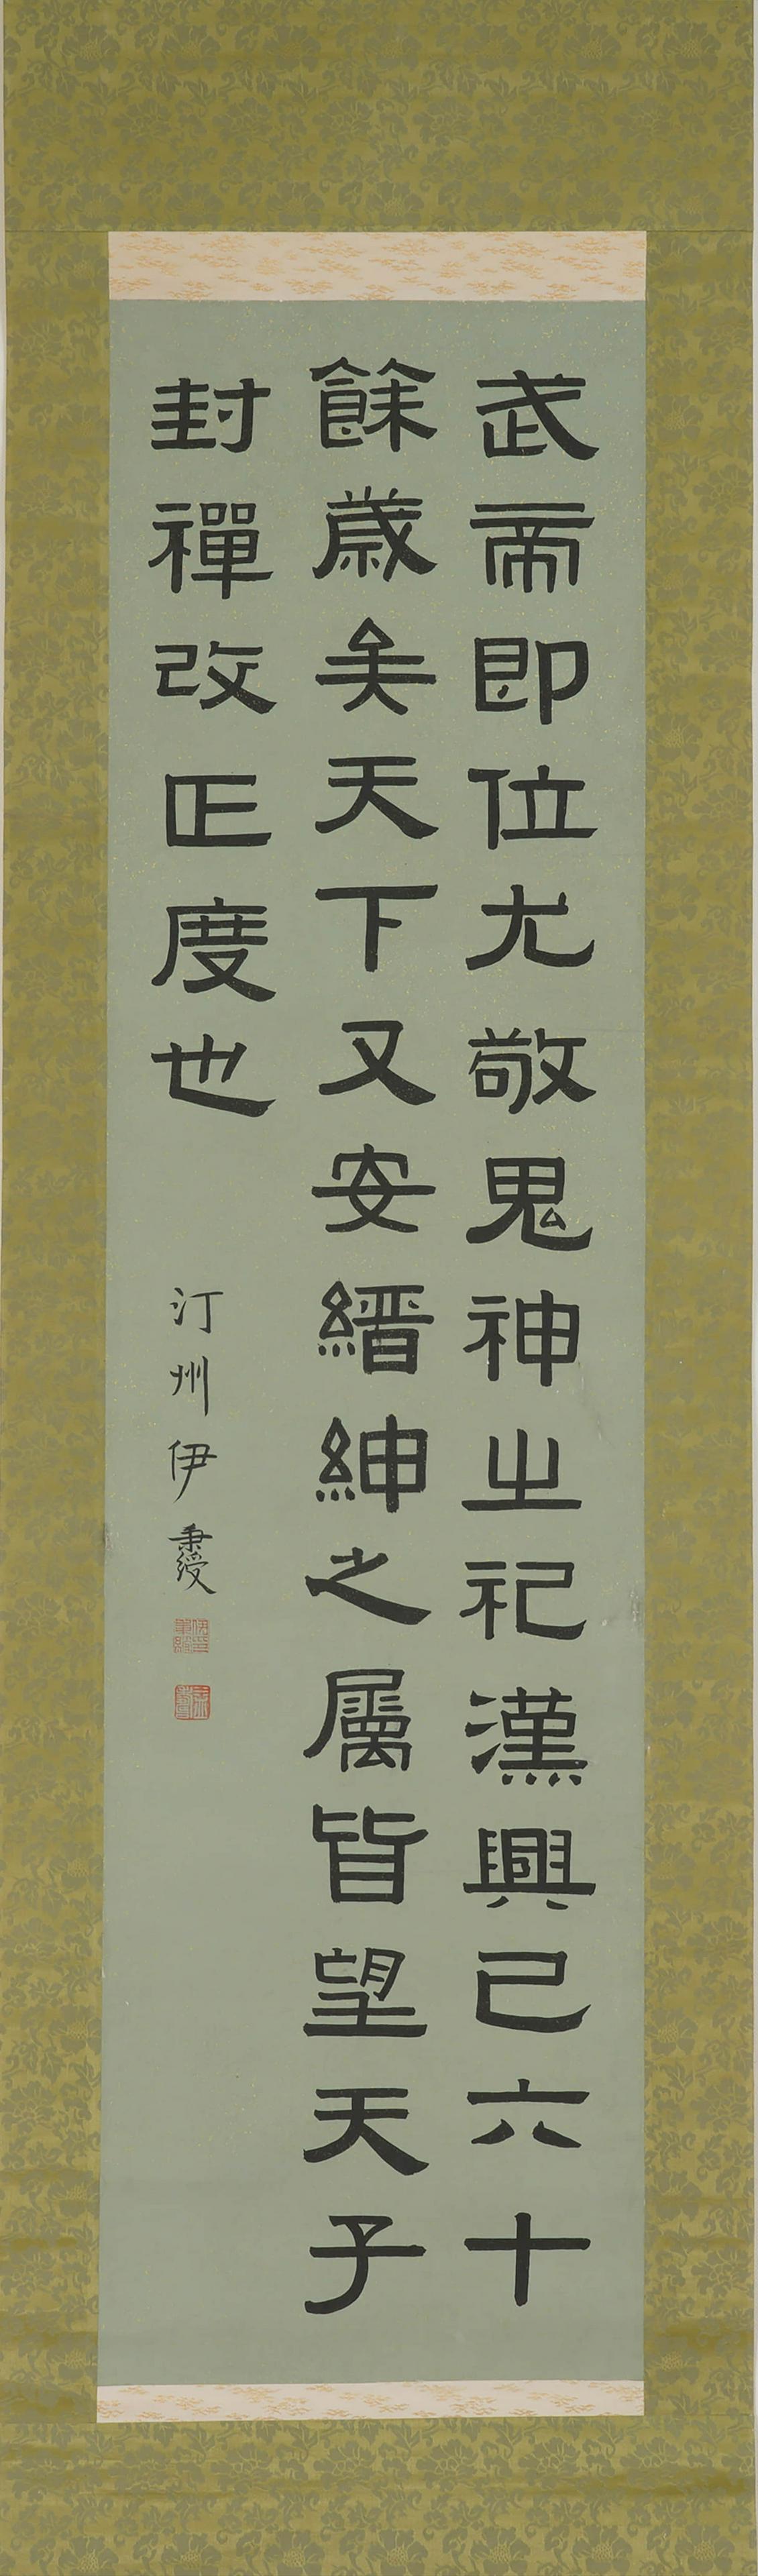 武帝即位尤敬鬼神之祀漢興已六十
餘歲矣天下又安縉紳之屬皆望天子
封禪改正度也
汀州伊秉綬